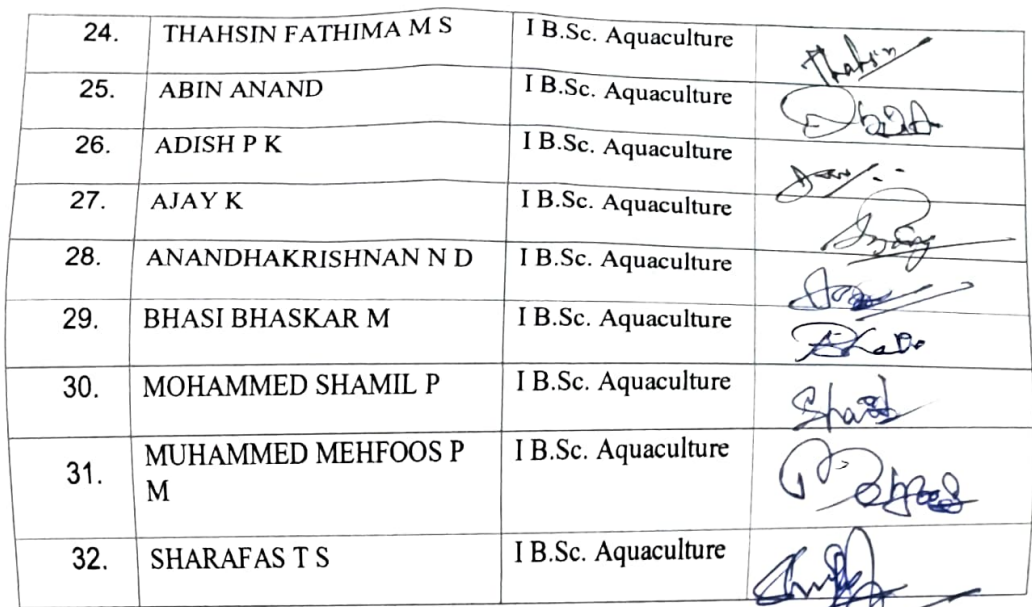 24. THAHSIN FATHIMA M S I B.Sc. Aquaculture Thahsin
25. ABIN ANAND I B.Sc. Aquaculture
26. ADISH P K I B.Sc. Aquaculture
27. AJAY K I B.Sc. Aquaculture
28. ANANDHAKRISHNAN N D I B.Sc. Aquaculture
29. BHASI BHASKAR M I B.Sc. Aquaculture
30. MOHAMMED SHAMIL P I B.Sc. Aquaculture
31. MUHAMMED MEHFOOS P I B.Sc. Aquaculture
M
32. SHARAFAS T S I B.Sc. Aquaculture